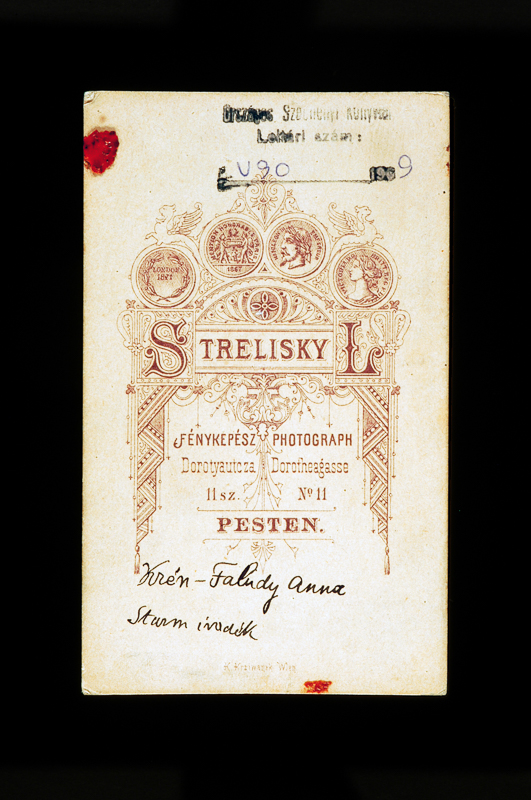 Országos Széchényi Könyvtár
Leltári szám:
V90 1969
LONDON
1871
1867
STRELISKY L
FÉNYKÉPÉSZ PHOTOGRAPH
Dorotyautcza Dorotheagasse
11 sz. No 11
PESTEN.
Krén-Faludy Anna
Sturm ivadék
K. Krziwanek Wien